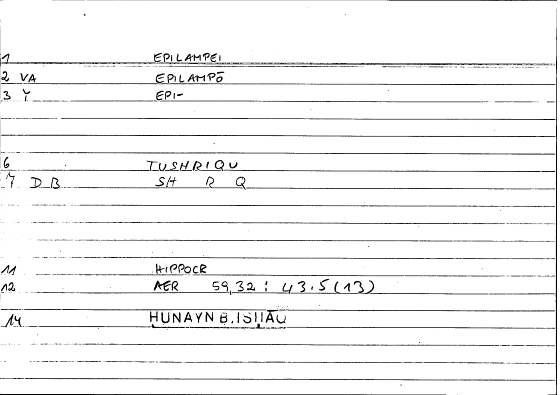 1 EPILAMPEI
2 VA EPILAMPŌ
3 Y EPI-
6 TUSHRIQU
7 D B SH R Q
11 HIPPOCR
12 AER 59,32 : 43.5 (13)
14 ḤUNAYN B. ISḤĀQ